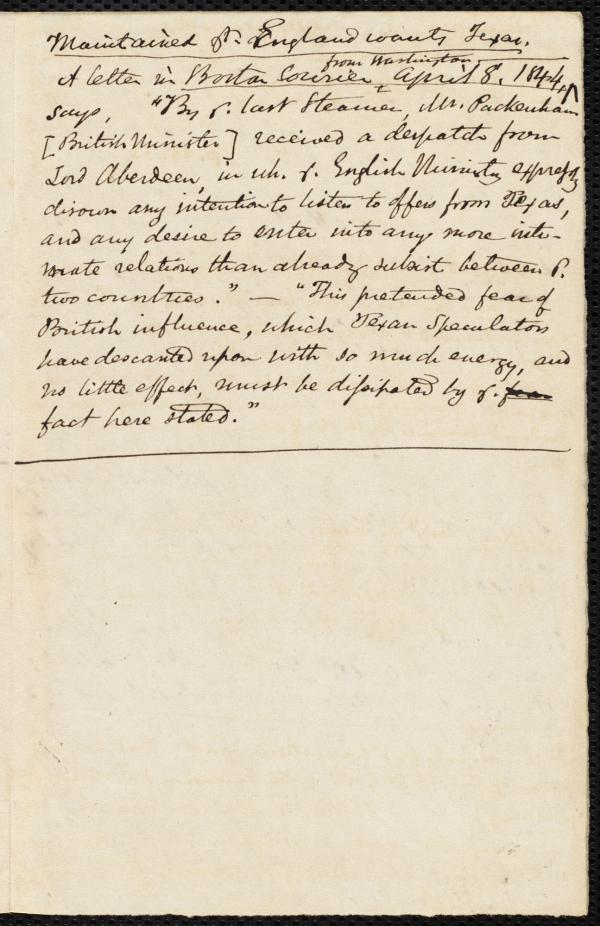 Maintained yt. England wants Texas.
from Washington
A letter in Boston Courier, April 8. 1844,
says, "By y. last Steamer, Mr. Packenham
[British Minister] received a despatch from
Lord Aberdeen, in wh. y. English Ministry expressly
disown any intention to listen to offers from Texas,
and any desire to enter into any more inti-
mate relations than already subsist between y.
two countries." — "This pretended fear of
British influence, which Texan Speculators
have descanted upon with so much energy, and
no little effect, must be dissipated by y. fear
fact here stated."